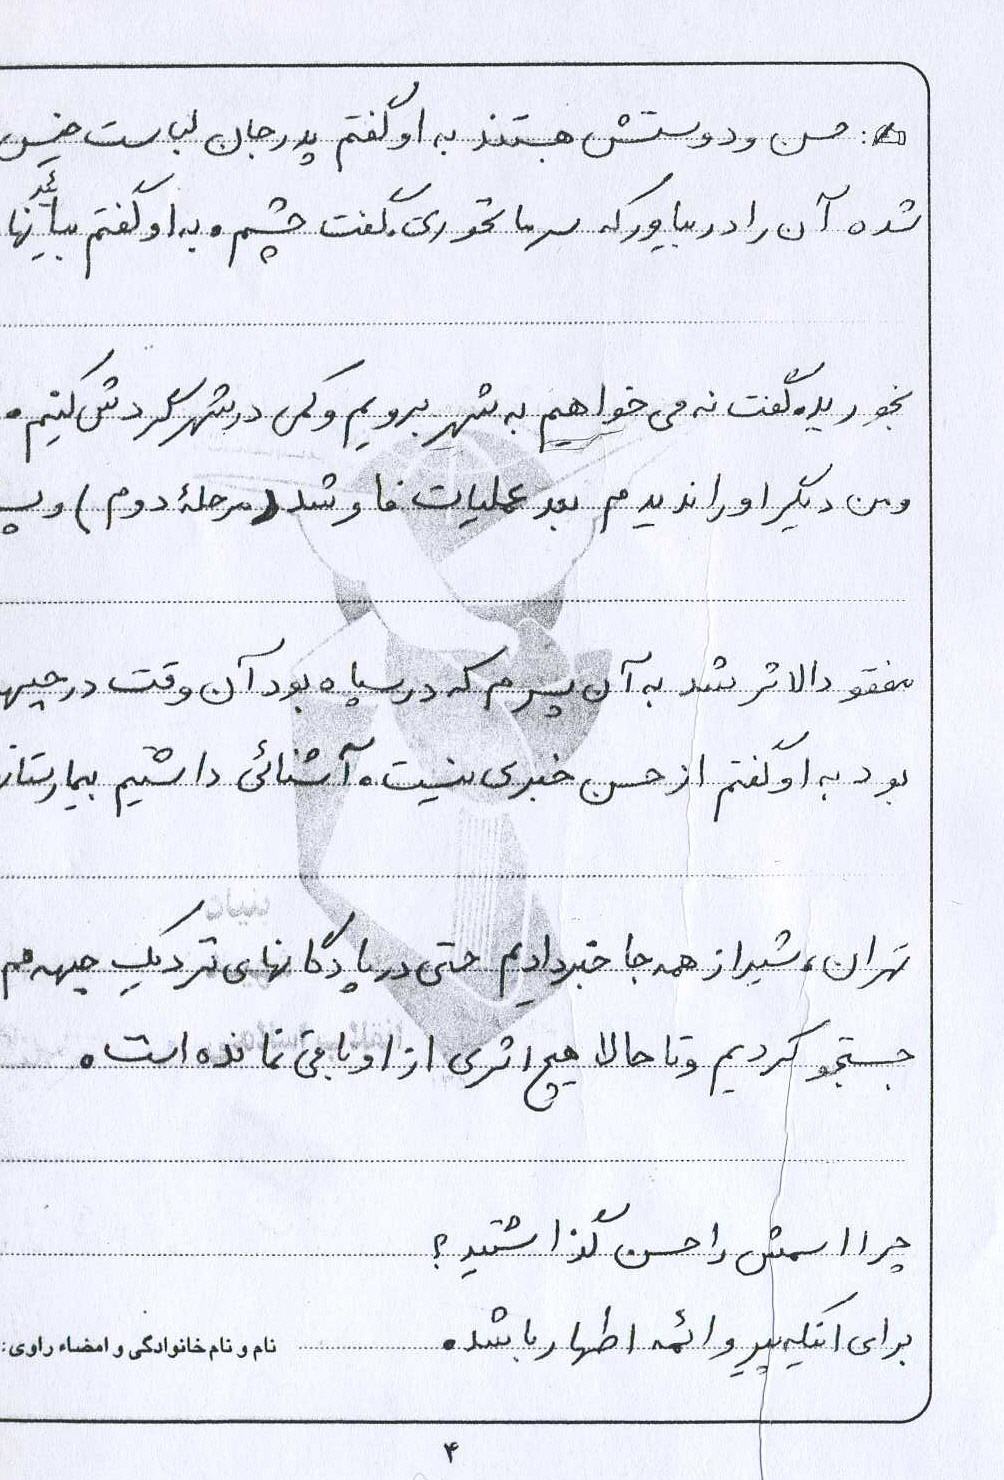 : حسن و دوستش هستند به او گفتم پدر جان لباست خیس
شده آن را در بیاور که سرما نخوری. گفت چشم. به او گفتم بیائید نهار
بخورید. گفت نه می خواهیم به شهر برویم و کمی در شهر گردش کنیم.
ومن دیگر او را ندیدم بعد عملیات فاو شد (مرحلهٔ دوم) و پسرم
مفقودالاثر شد به آن پسرم که در سپاه بود آن وقت در جبهه
بود به او گفتم از حسن خبری نیست. آشنائی داشتیم بیمارستان
تهران، شیراز همه جا خبر دادیم حتی در پادگانهای نزدیک جبهه هم
جستجو کردیم و تا حالا هیچ اثری از او باقی نمانده است.
چرا اسمش را حسن گذاشتید؟
برای اینکه پیرو ائمه اطهار باشد.
نام و نام خانوادگی و امضاء راوی:
۴